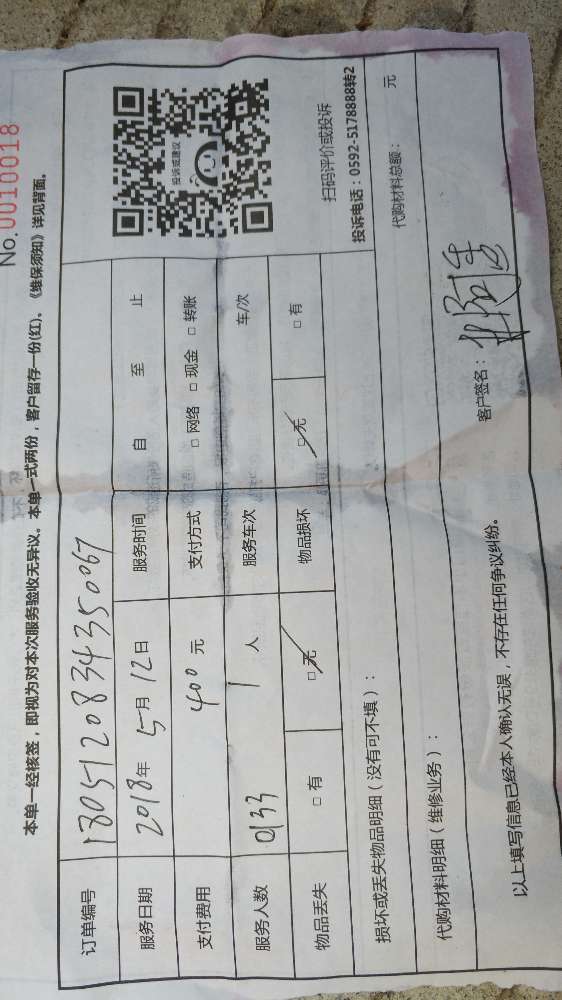 No.0010018
本单一经核签，即视为对本次服务验收无异议。本单一式两份，客户留存一份(红)。《维保须知》详见背面。
订单编号 1805120834350067
服务日期 2018年 5月 12日 服务时间 自 至 止
支付费用 400 元 支付方式 □ 网络 □ 现金 □ 转账
服务人数 0133 1 人 服务车次 车/次
物品丢失 □ 有 □ 无 物品损坏 □ 无 □ 有
投诉或建议
扫码评价或投诉
投诉电话：0592-5178888转2
损坏或丢失物品明细（没有可不填）：
代购材料明细（维修业务）： 代购材料总额： 元
以上填写信息已经本人确认无误，不存在任何争议纠纷。 客户签名：